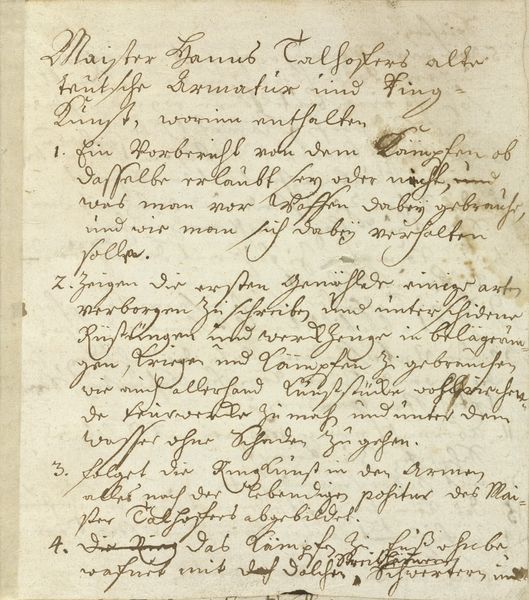 Maister Hanns Talhoffers alte
teutsche Armatur und Ring-
Kunst, worinn enthalten
1. Ein Vorbericht von dem Kämpfen ob
dasselbe erlaubt sey oder nicht, und
was man vor Waffen dabey gebrauche
und wie man sich dabey verhalten
solle.
2. Zeigen die ersten Gemählde einige arten
verborgen zu schreiben und unterschidene
Rüstungen und werkzeuge in belägerun
gen, kriegen und Kämpfen zu gebrauchen
wie auch allerhand Kunststücke wohlriechen
de feuerwerke zu mach und unter dem
wasser ohne Schaden zu gehen.
3. folget die Ringkunst in den Armen
alles nach der lebendigen positur des Mai-
ster Talhoffers abgebildet.
4. die Ring das Kämpfen zu fuß ohnbe
wafnet mit dolchen, Streithämern Schwertern und